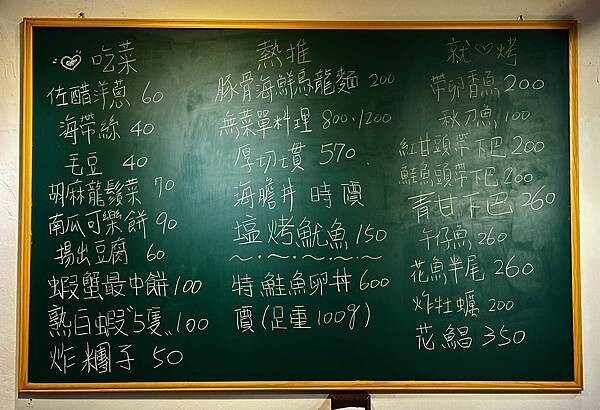 ♡ 吃菜
佐醋洋蔥 60
海帶絲 40
毛豆 40
胡麻龍鬚菜 70
南瓜可樂餅 90
揚出豆腐 60
蝦蟹最中餅 100
熟白蝦5隻 100
炸糰子 50
熱推
豚骨海鮮烏龍麵 200
無菜單料理 800、1200
厚切𩵚 570
海膽丼 時價
塩烤魷魚 150
特鮭魚卵丼 600
價(足重100g)
就♡烤
帶卵香魚 200
秋刀魚 100
紅甘頭帶下巴 200
鮭魚頭帶下巴 200
青甘下巴 260
午仔魚 260
花魚半尾 260
炸牡蠣 200
花鯧 350